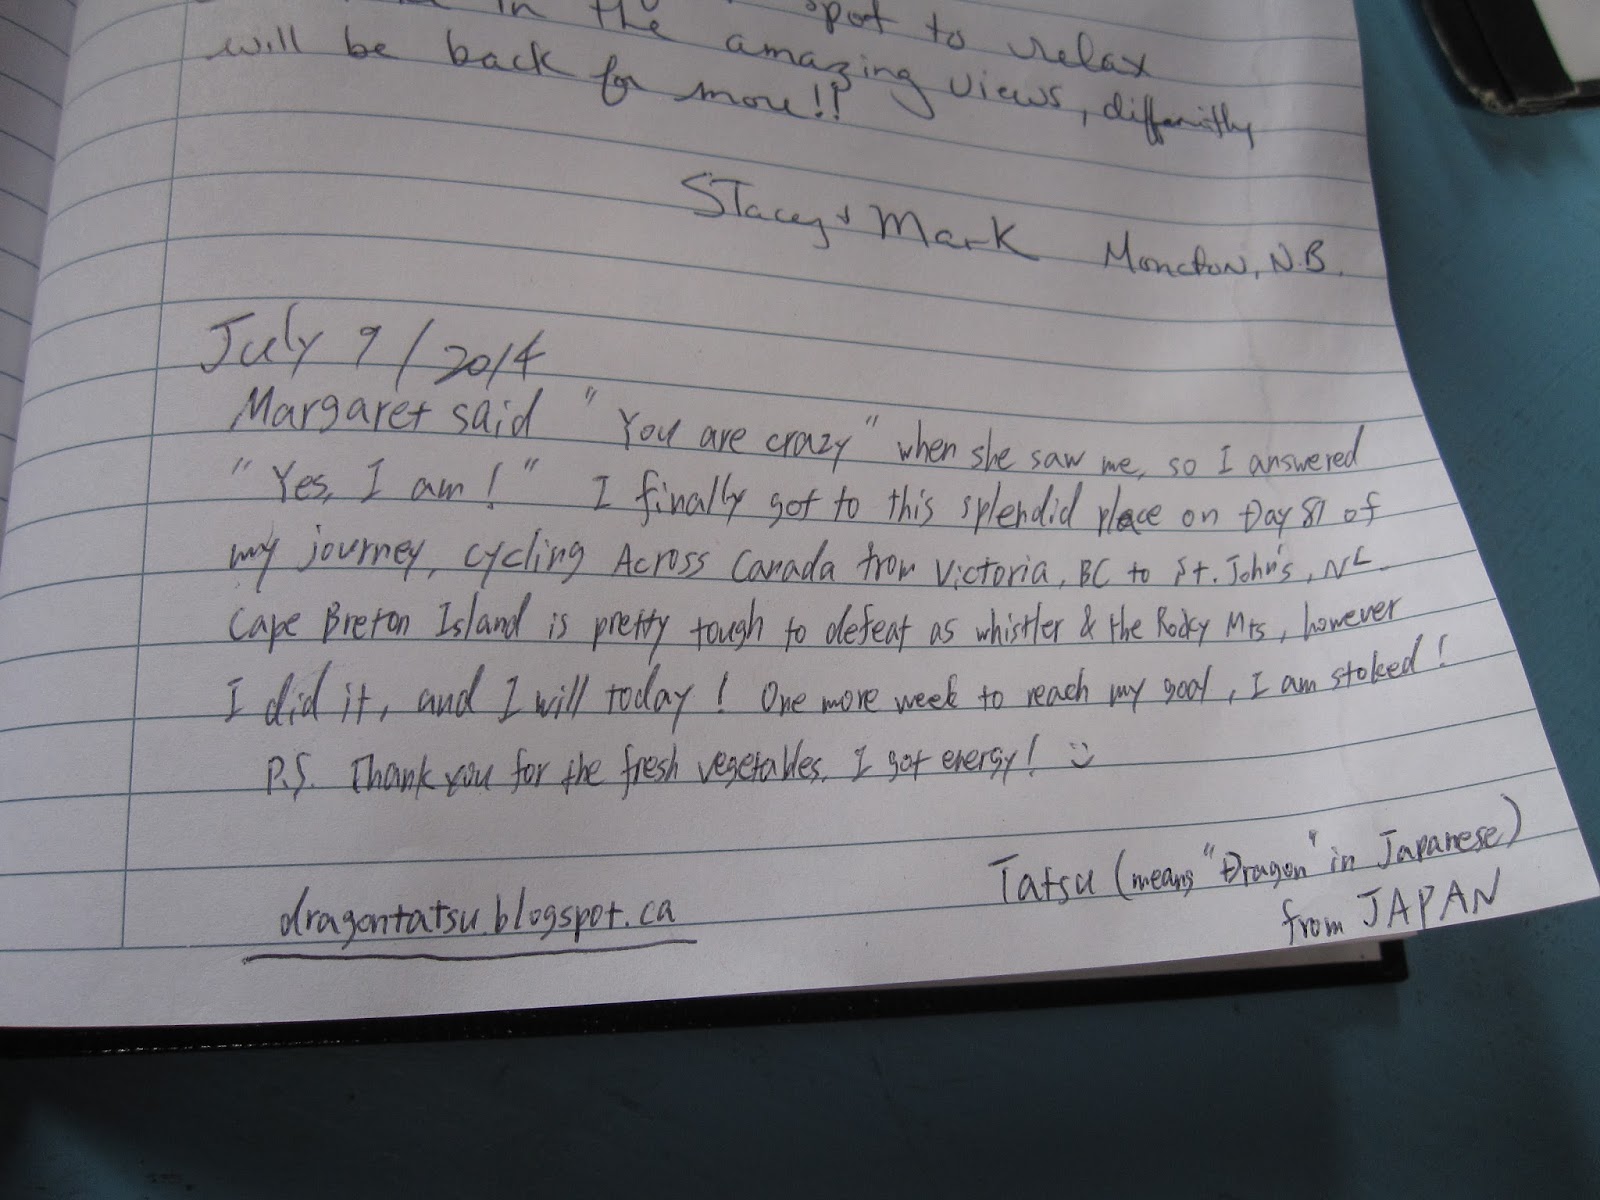 in the spot to relax
in the amazing views, differnitly
will be back for more!!
Stacey + Mark Moncton, N.B.
July 9/2014
Margaret said "You are crazy" when she saw me, so I answered
"Yes, I am!" I finally got to this splendid place on Day 81 of
my journey, cycling Across Canada from Victoria, BC to St. John's, NL.
Cape Breton Island is pretty tough to defeat as whistler & the Rocky Mts, however
I did it, and I will today! One more week to reach my goal, I am stoked!
P.S. Thank you for the fresh vegetables. I got energy! :)
Tatsu (means "Dragon" in Japanese)
from JAPAN
dragontatsu.blogspot.ca